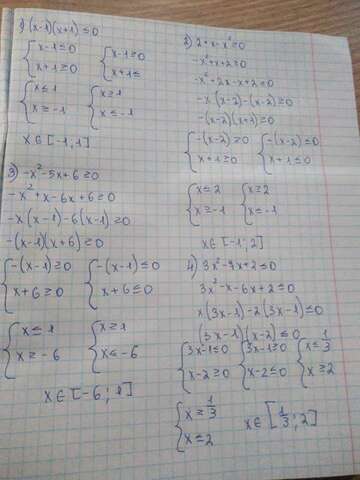 1) (x-1)(x+1) ≤ 0
{ x-1 ≤ 0 { x-1 ≥ 0
{ x+1 ≥ 0 { x+1 ≤
{ x ≤ 1 { x ≥ 1
{ x ≥ -1 { x ≤ -1
x ∈ [-1; 1]
2) 2+x-x² ≥ 0
-x²+x+2 ≥ 0
-x²+2x-x+2 ≥ 0
-x(x-2)-(x-2) ≥ 0
-(x-2)(x+1) ≥ 0
{ -(x-2) ≥ 0 { -(x-2) ≤ 0
{ x+1 ≥ 0 { x+1 ≤ 0
{ x ≤ 2 { x ≥ 2
{ x ≥ -1 { x ≤ -1
x ∈ [-1; 2]
3) -x²-5x+6 ≥ 0
-x²+x-6x+6 ≥ 0
-x(x-1)-6(x-1) ≥ 0
-(x-1)(x+6) ≥ 0
{ -(x-1) ≥ 0 { -(x-1) ≤ 0
{ x+6 ≥ 0 { x+6 ≤ 0
{ x ≤ 1 { x ≥ 1
{ x ≥ -6 { x ≤ -6
x ∈ [-6; 1]
4) 3x²-7x+2 ≤ 0
3x²-x-6x+2 ≤ 0
x(3x-1)-2(3x-1) ≤ 0
(3x-1)(x-2) ≤ 0
{ 3x-1 ≤ 0 { 3x-1 ≥ 0 { x ≤ 1/3
{ x-2 ≥ 0 { x-2 ≤ 0 { x ≥ 2
{ x ≥ 1/3
{ x ≤ 2
x ∈ [1/3; 2]